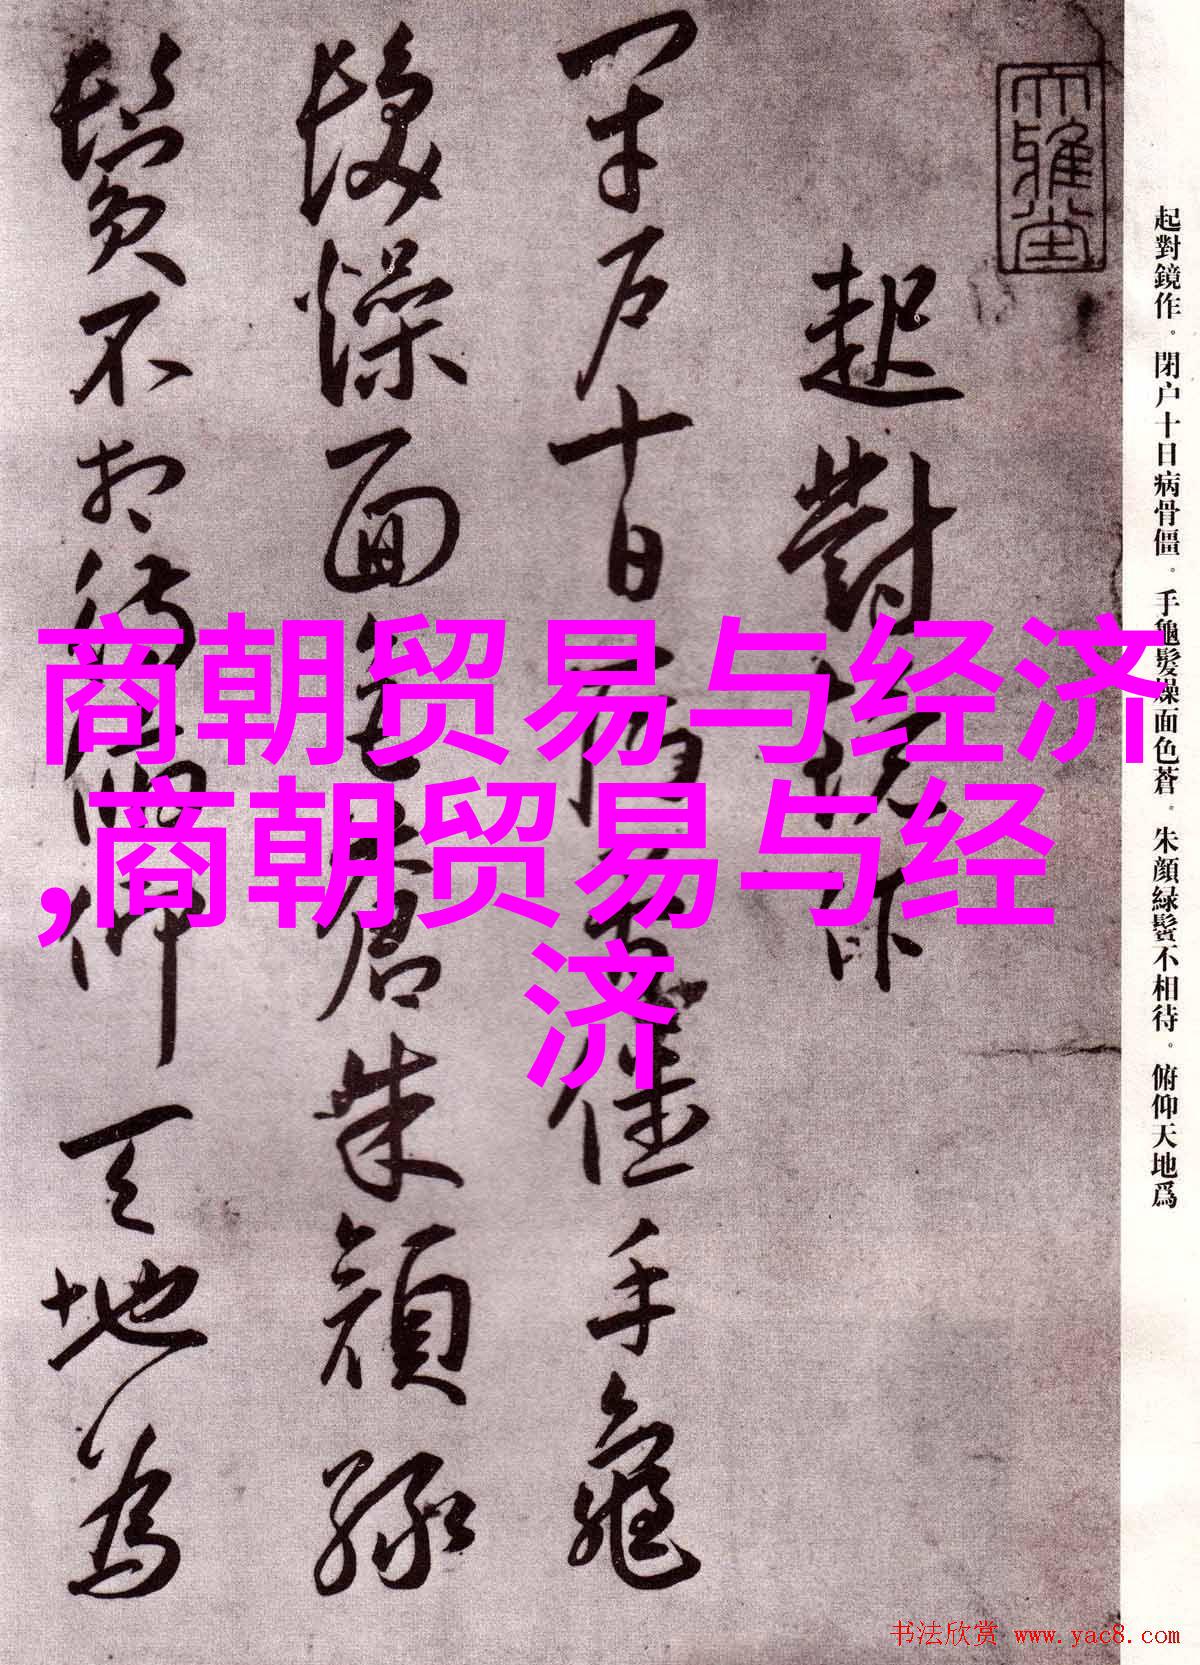 商朝贸易与经济
,商朝贸易与经
济
大雅堂
起對鏡作
閉户十日病骨僵手龜
髮燥面色蒼朱顔緑
鬢不相待俯仰天地為
起對鏡作。閉户十日病骨僵。手龜髮燥面色蒼。朱顔緑鬢不相待。俯仰天地爲
书法欣赏 www.yac8.com